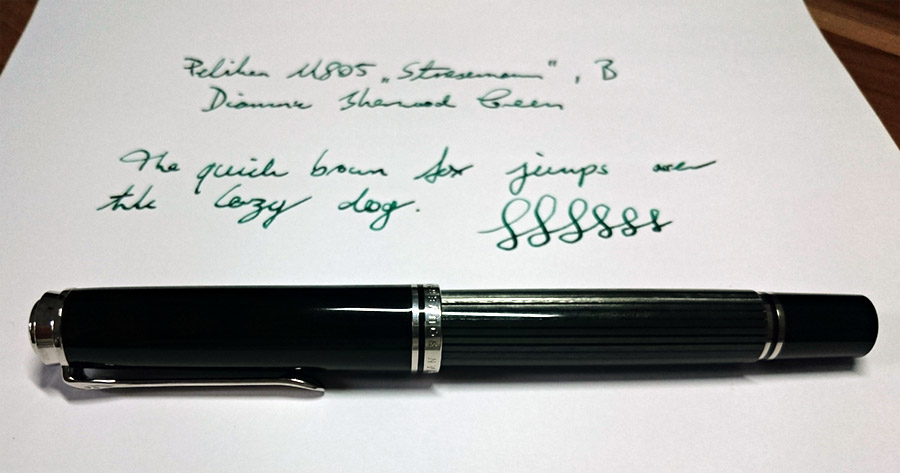 Pelikan M805 „Stresemann", B
Diamine Sherwood Green
The quick brown fox jumps over
the lazy dog.